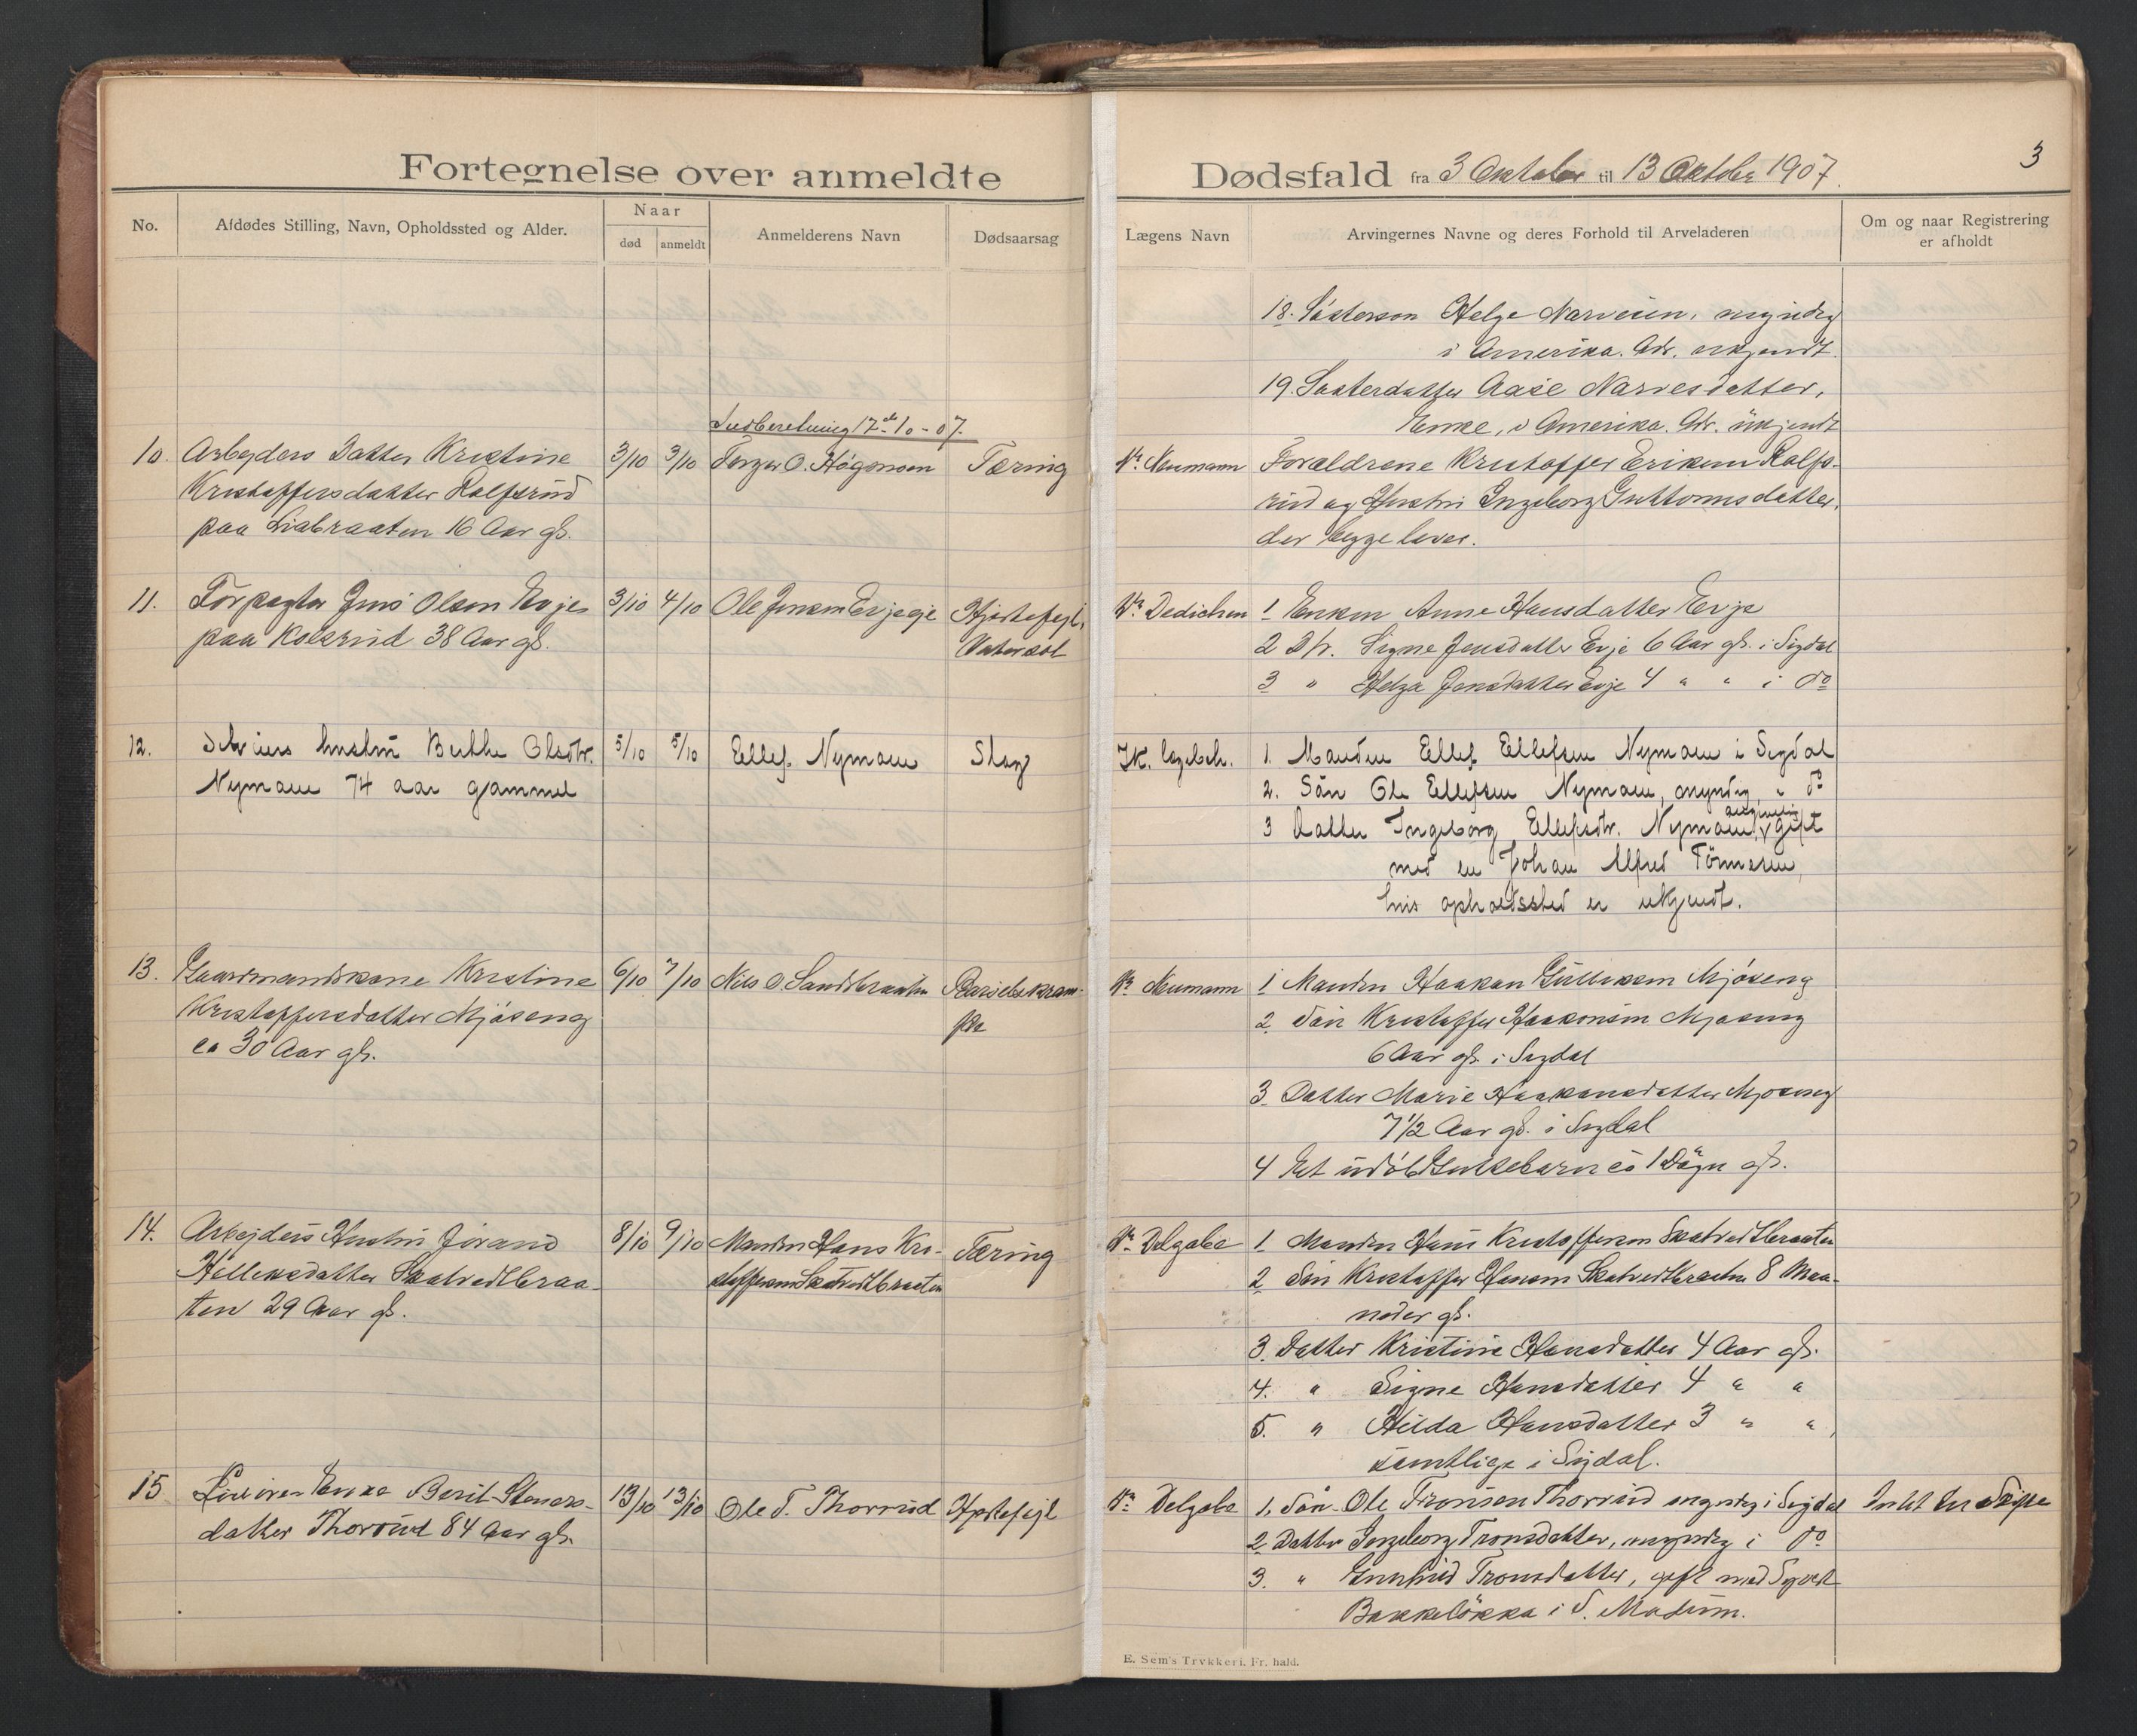 Fortegnelse over anmeldte
No.
Afdødes Stilling, Navn, Opholdssted og Alder.
Naar
død
anmeldt
Anmelderens Navn
Dødsaarsag
Indberetning 17de 10 - 07.
10. Arbejders Datter Kristine 3/10 3/10 Torger O. Høgonsen Tæring
Kristoffersdatter Rolfsrud
paa Liabraaten 16 Aar gl.
11. Forpagter Jens Olsen Evje 3/10 4/10 Ole Jensen Hjertefejl,
paa Kolsrud 38 Aar gl. Vatersot
12. hustru Berthe Olsdtr. 5/10 5/10 Ellef Nymoen Slag
Nymoen 74 aar gammel
13. Gaardmandskone Kristine 6/10 7/10 Nils O. Sandbraaten Barselskram-
Kristoffersdatter Mjøseng pe
ca 30 Aar gl.
14. Arbejders Hustru Jørand 8/10 9/10 Manden Hans Kri- Tæring
Helleksdatter Skatvedtbraa- stoffersen Skatvedtbraaten
ten 29 Aar gl.
15 Enke Beril Steners- 13/10 13/10 Ole T. Thorrud Hjertefejl
datter Thorrud 84 Aar gl.
Dødsfald fra 3 Oktober til 13 Oktober 1907.
3
Lægens Navn
Arvingernes Navne og deres Forhold til Arveladeren
Om og naar Registrering
er afholdt
18. Søsterson Helge Narvesen, myndig
i Amerika. Adr. ukjendt.
19. Søsterdatter Aase Narvesdatter,
Enke, i Amerika. Adr. ukjendt
Dr. Neumann Forældrene Kristoffer Eriksen Rolfs-
rud og Hustru Ingeborg Guttormsdatter,
der begge lever.
Dr. Dedichen 1 Enken Anne Hansdatter Evje
2 Dtr. Signe Jensdatter Evje 6 Aar gl. i Sigdal
3 " Helga Jensdatter Evje 4 " " i do
1. Manden Ellef Ellefsen Nymoen i Sigdal
2. Søn Ole Ellefsen Nymoen, myndig, i do
3 Datter Ingeborg Ellefsdtr. Nymoen, gift
med en Johan Alfred Tønnesen,
hvis opholdssted er ukjendt.
Dr. Neumann 1 Manden Haakon Gulliksen Mjøseng
2. Søn Kristoffer Haakonsen Mjøseng
6 Aar gl. i Sigdal
3. Datter Marie Haakonsdatter Mjøseng
7 1/2 Aar gl. i Sigdal
4 Et udøbt Guttebarn ca 1 Døgn gl.
Dr. Delgobe 1 Manden Hans Kristoffersen Skatvedtbraaten
2 Søn Kristoffer Hansen Skatvedtbraaten 8 Maa-
neder gl.
3. Datter Kristine Hansdatter 4 Aar gl.
4. " Signe Hansdatter 4 " "
5. " Hilda Hansdatter 3 " "
samtlige i Sigdal.
Dr. Delgobe 1. Søn Ole Tronsen Thorrud myndig i Sigdal Intet at Skifte
2 Datter Ingeborg Tronsdatter, myndig i do
3. " Gunhild Tronsdatter, gift med Syvert
Bakkeløkka i S. Modum.
E. Sem's Trykkeri. Fr. hald.